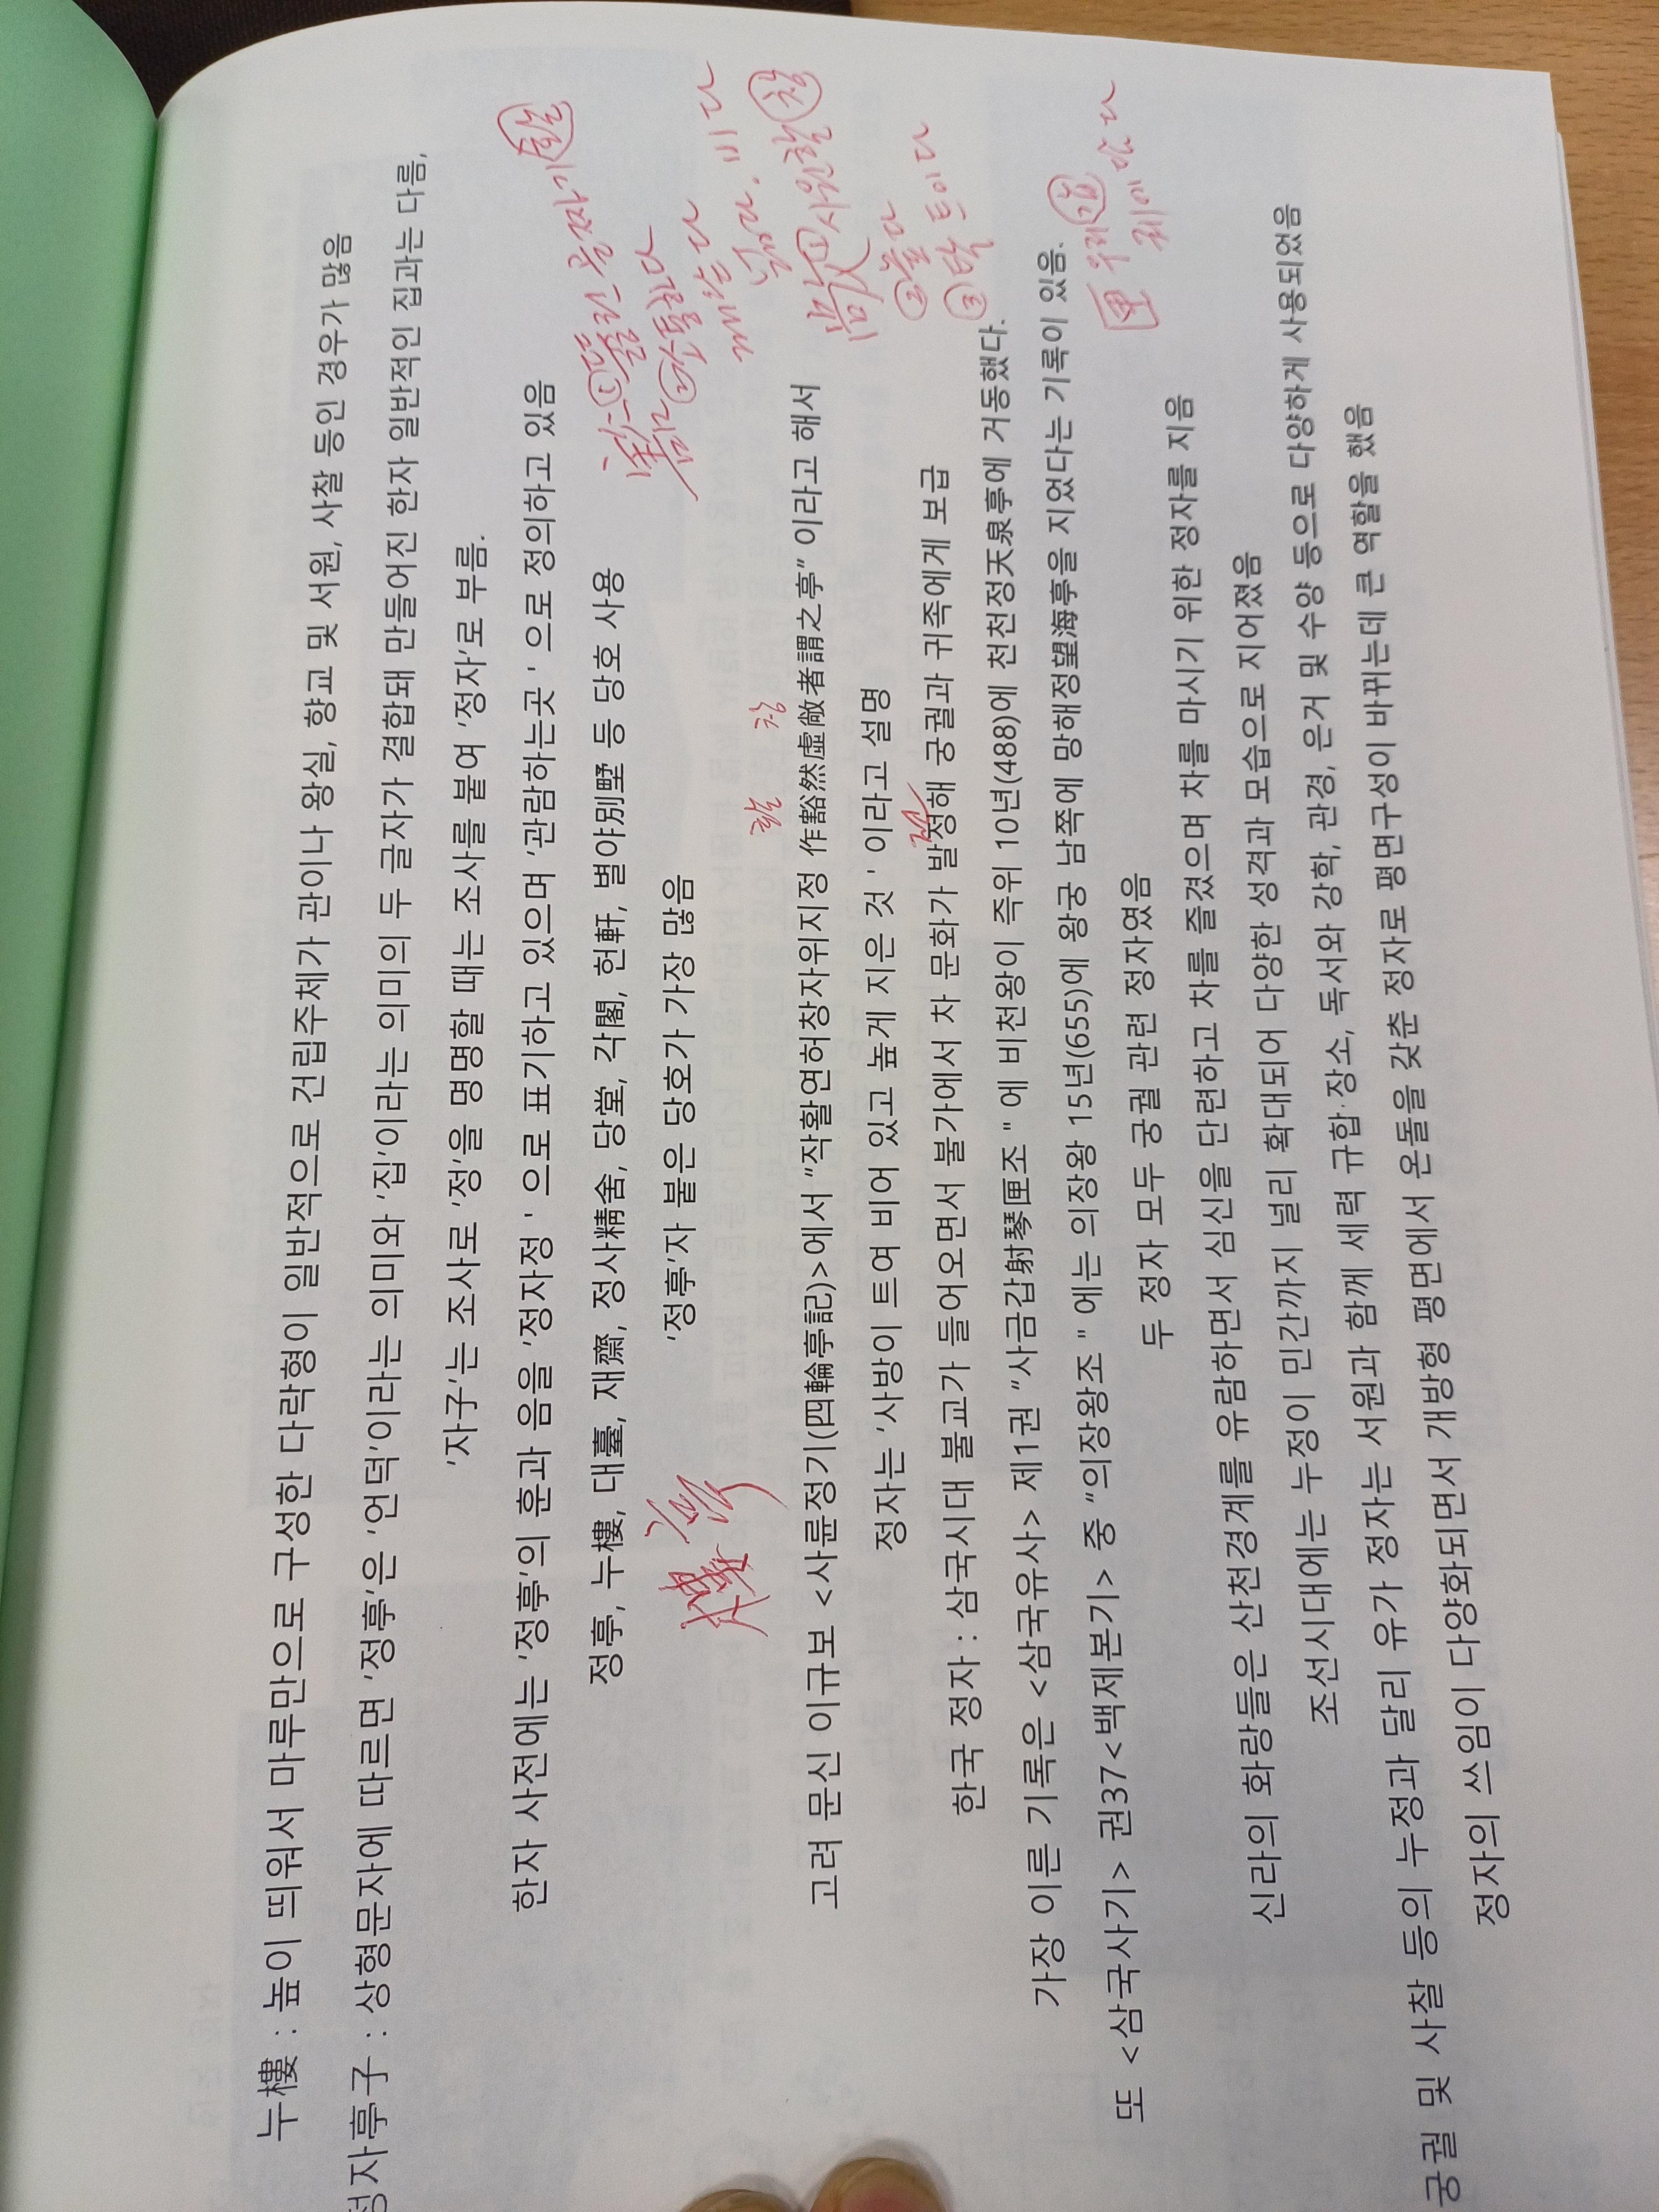 누樓 : 높이 띄워서 마루만으로 구성한 다락형이 일반적으로 건립주체가 관이나 왕실, 향교 및 서원, 사찰 등인 경우가 많음
정자亭子 : 상형문자에 따르면 '정亭'은 '언덕'이라는 의미와 '집'이라는 의미의 두 글자가 결합돼 만들어진 한자 일반적인 집과는 다름,
'자子'는 조사로 '정'을 명명할 때는 조사를 붙여 '정자'로 부름.
한자 사전에는 '정亭'의 훈과 음을 '정자정 ' 으로 표기하고 있으며 '관람하는곳 ' 으로 정의하고 있음
정亭, 누樓, 대臺, 재齋, 정사精舍, 당堂, 각閣, 헌軒, 별야別墅 등 당호 사용
'정亭'자 붙은 당호가 가장 많음
고려 문신 이규보 <사륜정기(四輪亭記)>에서 "작활연허창자위지정 作豁然虛敞者謂之亭" 이라고 해서
정자는 '사방이 트여 비어 있고 높게 지은 것 ' 이라고 설명
한국 정자 : 삼국시대 불교가 들어오면서 불가에서 차 문화가 발정해 궁궐과 귀족에게 보급
가장 이른 기록은 <삼국유사> 제1권 "사금갑射琴匣조 " 에 비천왕이 즉위 10년(488)에 천천정天泉亭에 거동했다.
또 <삼국사기> 권37<백제본기> 중 "의장왕조 " 에는 의장왕 15년(655)에 왕궁 남쪽에 망해정望海亭을 지었다는 기록이 있음.
두 정자 모두 궁궐 관련 정자였음
신라의 화랑들은 산천경계를 유람하면서 심신을 단련하고 차를 즐겼으며 차를 마시기 위한 정자를 지음
조선시대에는 누정이 민간까지 널리 확대되어 다양한 성격과 모습으로 지어졌음
궁궐 및 사찰 등의 누정과 달리 유가 정자는 서원과 함께 세력 규합·장소, 독서와 강학, 관경, 은거 및 수양 등으로 다양하게 사용되었음
정자의 쓰임이 다양화되면서 개방형 평면에서 온돌을 갖춘 정자로 평면구성이 바뀌는데 큰 역할을 했음
뚫린 골짜기 활
② 소통한다
깨닫는다
넓다. 비다
활 창
敞 ① 시원할 창
② 높다
③ 탁 트이다
전
匣 우리 갑
궤에